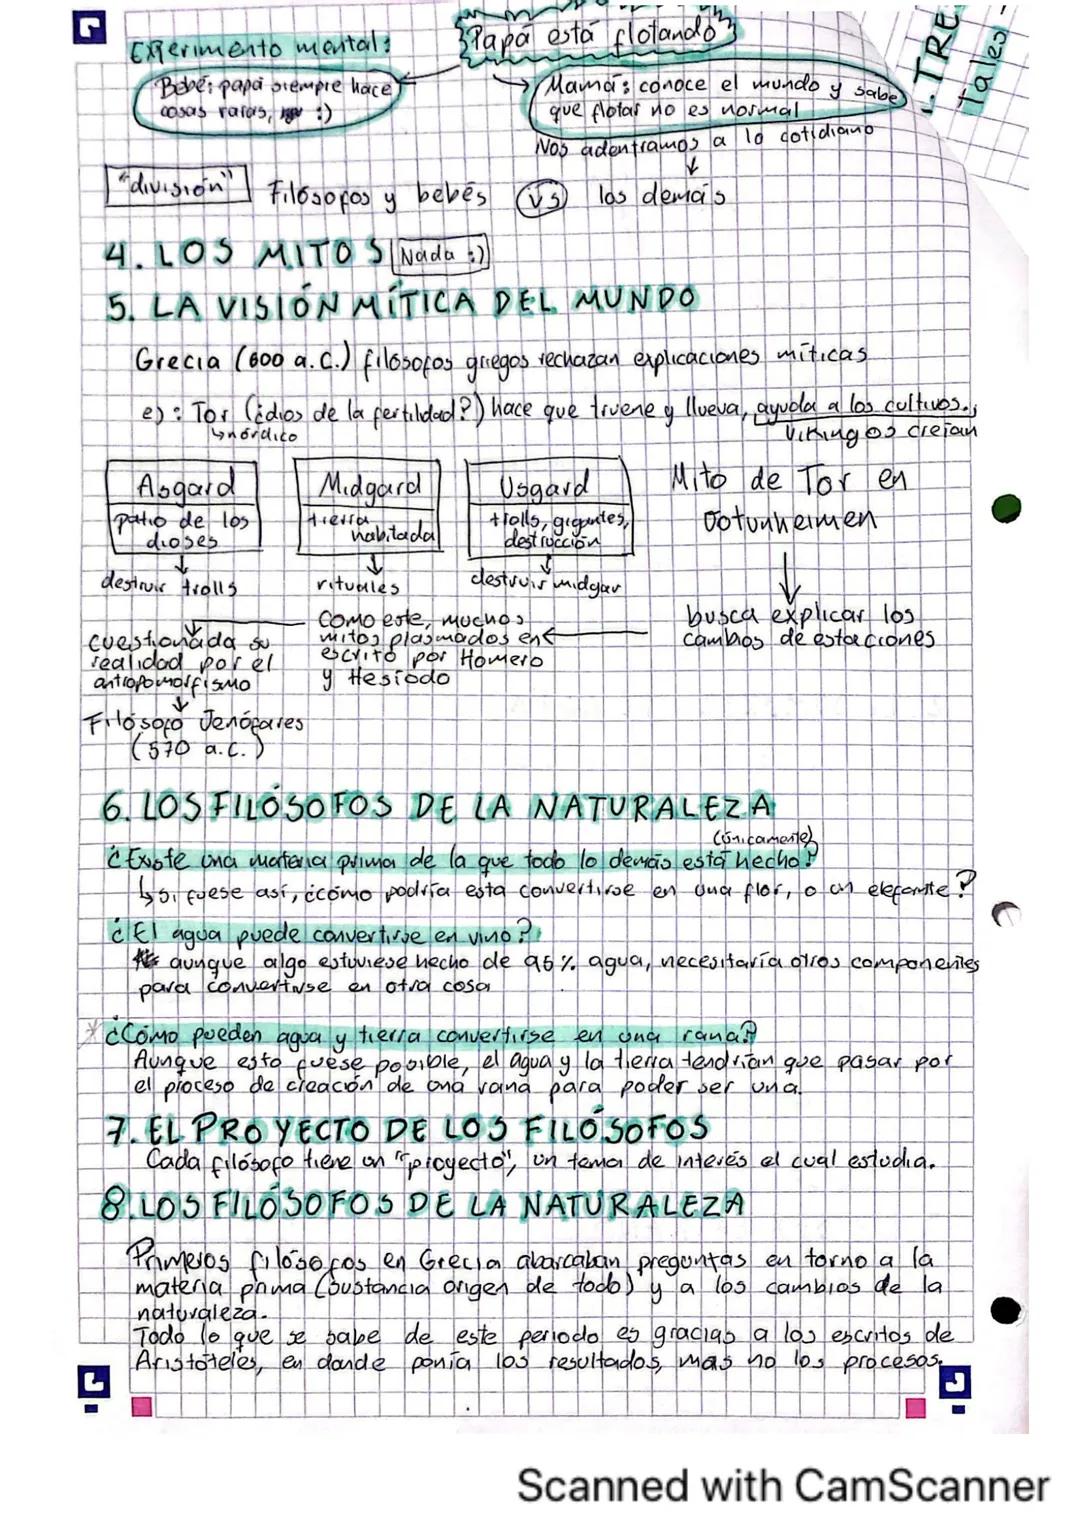 Experimento mental:
"Papá está flotando"
Bebé: papá siempre hace
cosas raras, :)
Mamá: conoce el mundo y sabe
que flotar no es normal
Nos adentramos a lo cotidiano
"división"
Filósofos y bebés vs los demás
1. TRE
Tales
4. LOS MITOS Nada :)
5. LA VISIÓN MÍTICA DEL MUNDO
Grecia (600 a.C.) filósofos griegos rechazan explicaciones míticas
ej: Tor (¿dios de la fertildad?) hace que truene y llueva, ayuda a los cultivos.
nórdico
Vikingos creían
Asgard
patio de los
dioses
destruir trolls
Midgard
tierra
habitada
rituales
Usgard
trolls, gigantes,
destrucción
destruir midgar
Mito de Tor en
Jotunheimen
busca explicar los
cambios de estaciones
Como este, muchos
mitos plasmados en
escrito por Homero
y Hesíodo
cuestionada su
realidad por el
antropomorfismo
Filósofo Jenófares
(570 a.C.)
6. LOS FILÓSOFOS DE LA NATURALEZA
(únicamente)
¿Existe una materia prima de la que todo lo demás está hecho?
Si fuese así, ¿cómo podría esta convertirse en una flor, o un elefante?
¿El agua puede convertirse en vino?
aunque algo estuviese hecho de 95% agua, necesitaría otros componentes
para convertirse en otra cosa
*¿Cómo pueden agua y tierra convertirse en una rana?
Aunque esto fuese posible, el agua y la tierra tendrían que pasar por
el proceso de creación de una rana para poder ser una.
7. EL PROYECTO DE LOS FILÓSOFOS
Cada filósofo tiene un "proyecto", un tema de interés el cual estudia.
8. LOS FILÓSOFOS DE LA NATURALEZA
Primeros filósofos en Grecia abarcaban preguntas en torno a la
materia prima (sustancia origen de todo) y a los cambios de la
naturaleza.
Todo lo que se sabe de este periodo es gracias a los escritos de
Aristóteles, en donde ponía los resultados, mas no los procesos.
Scanned with CamScanner